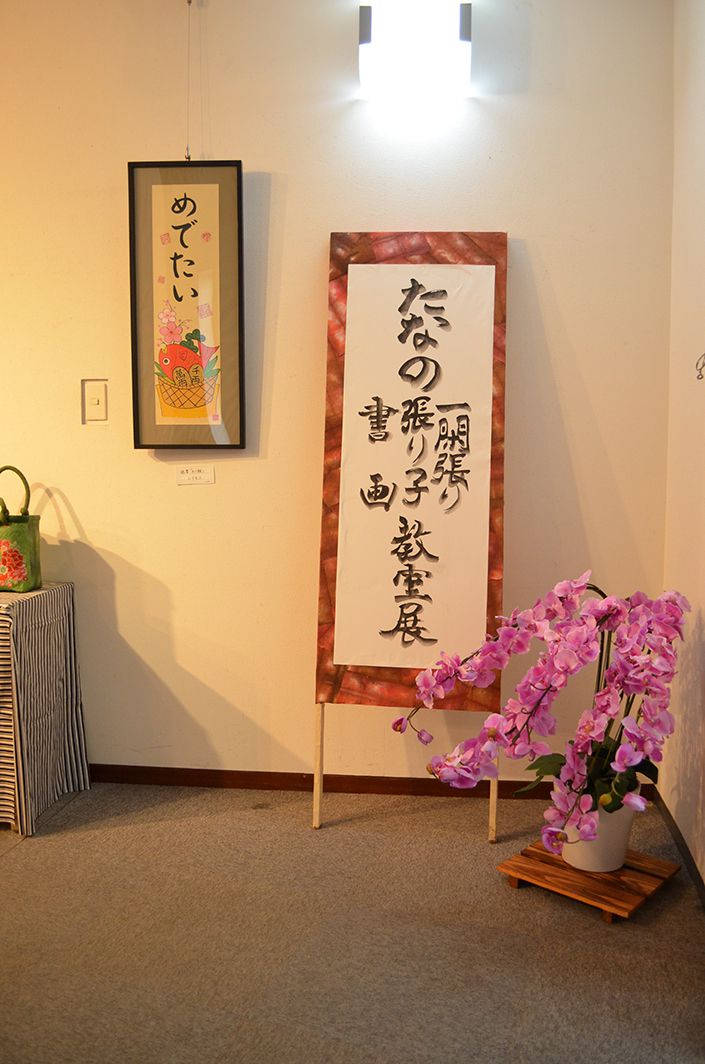 めでたい
千両
萬両
たなの
一閑張り
張り子
書画
教室展